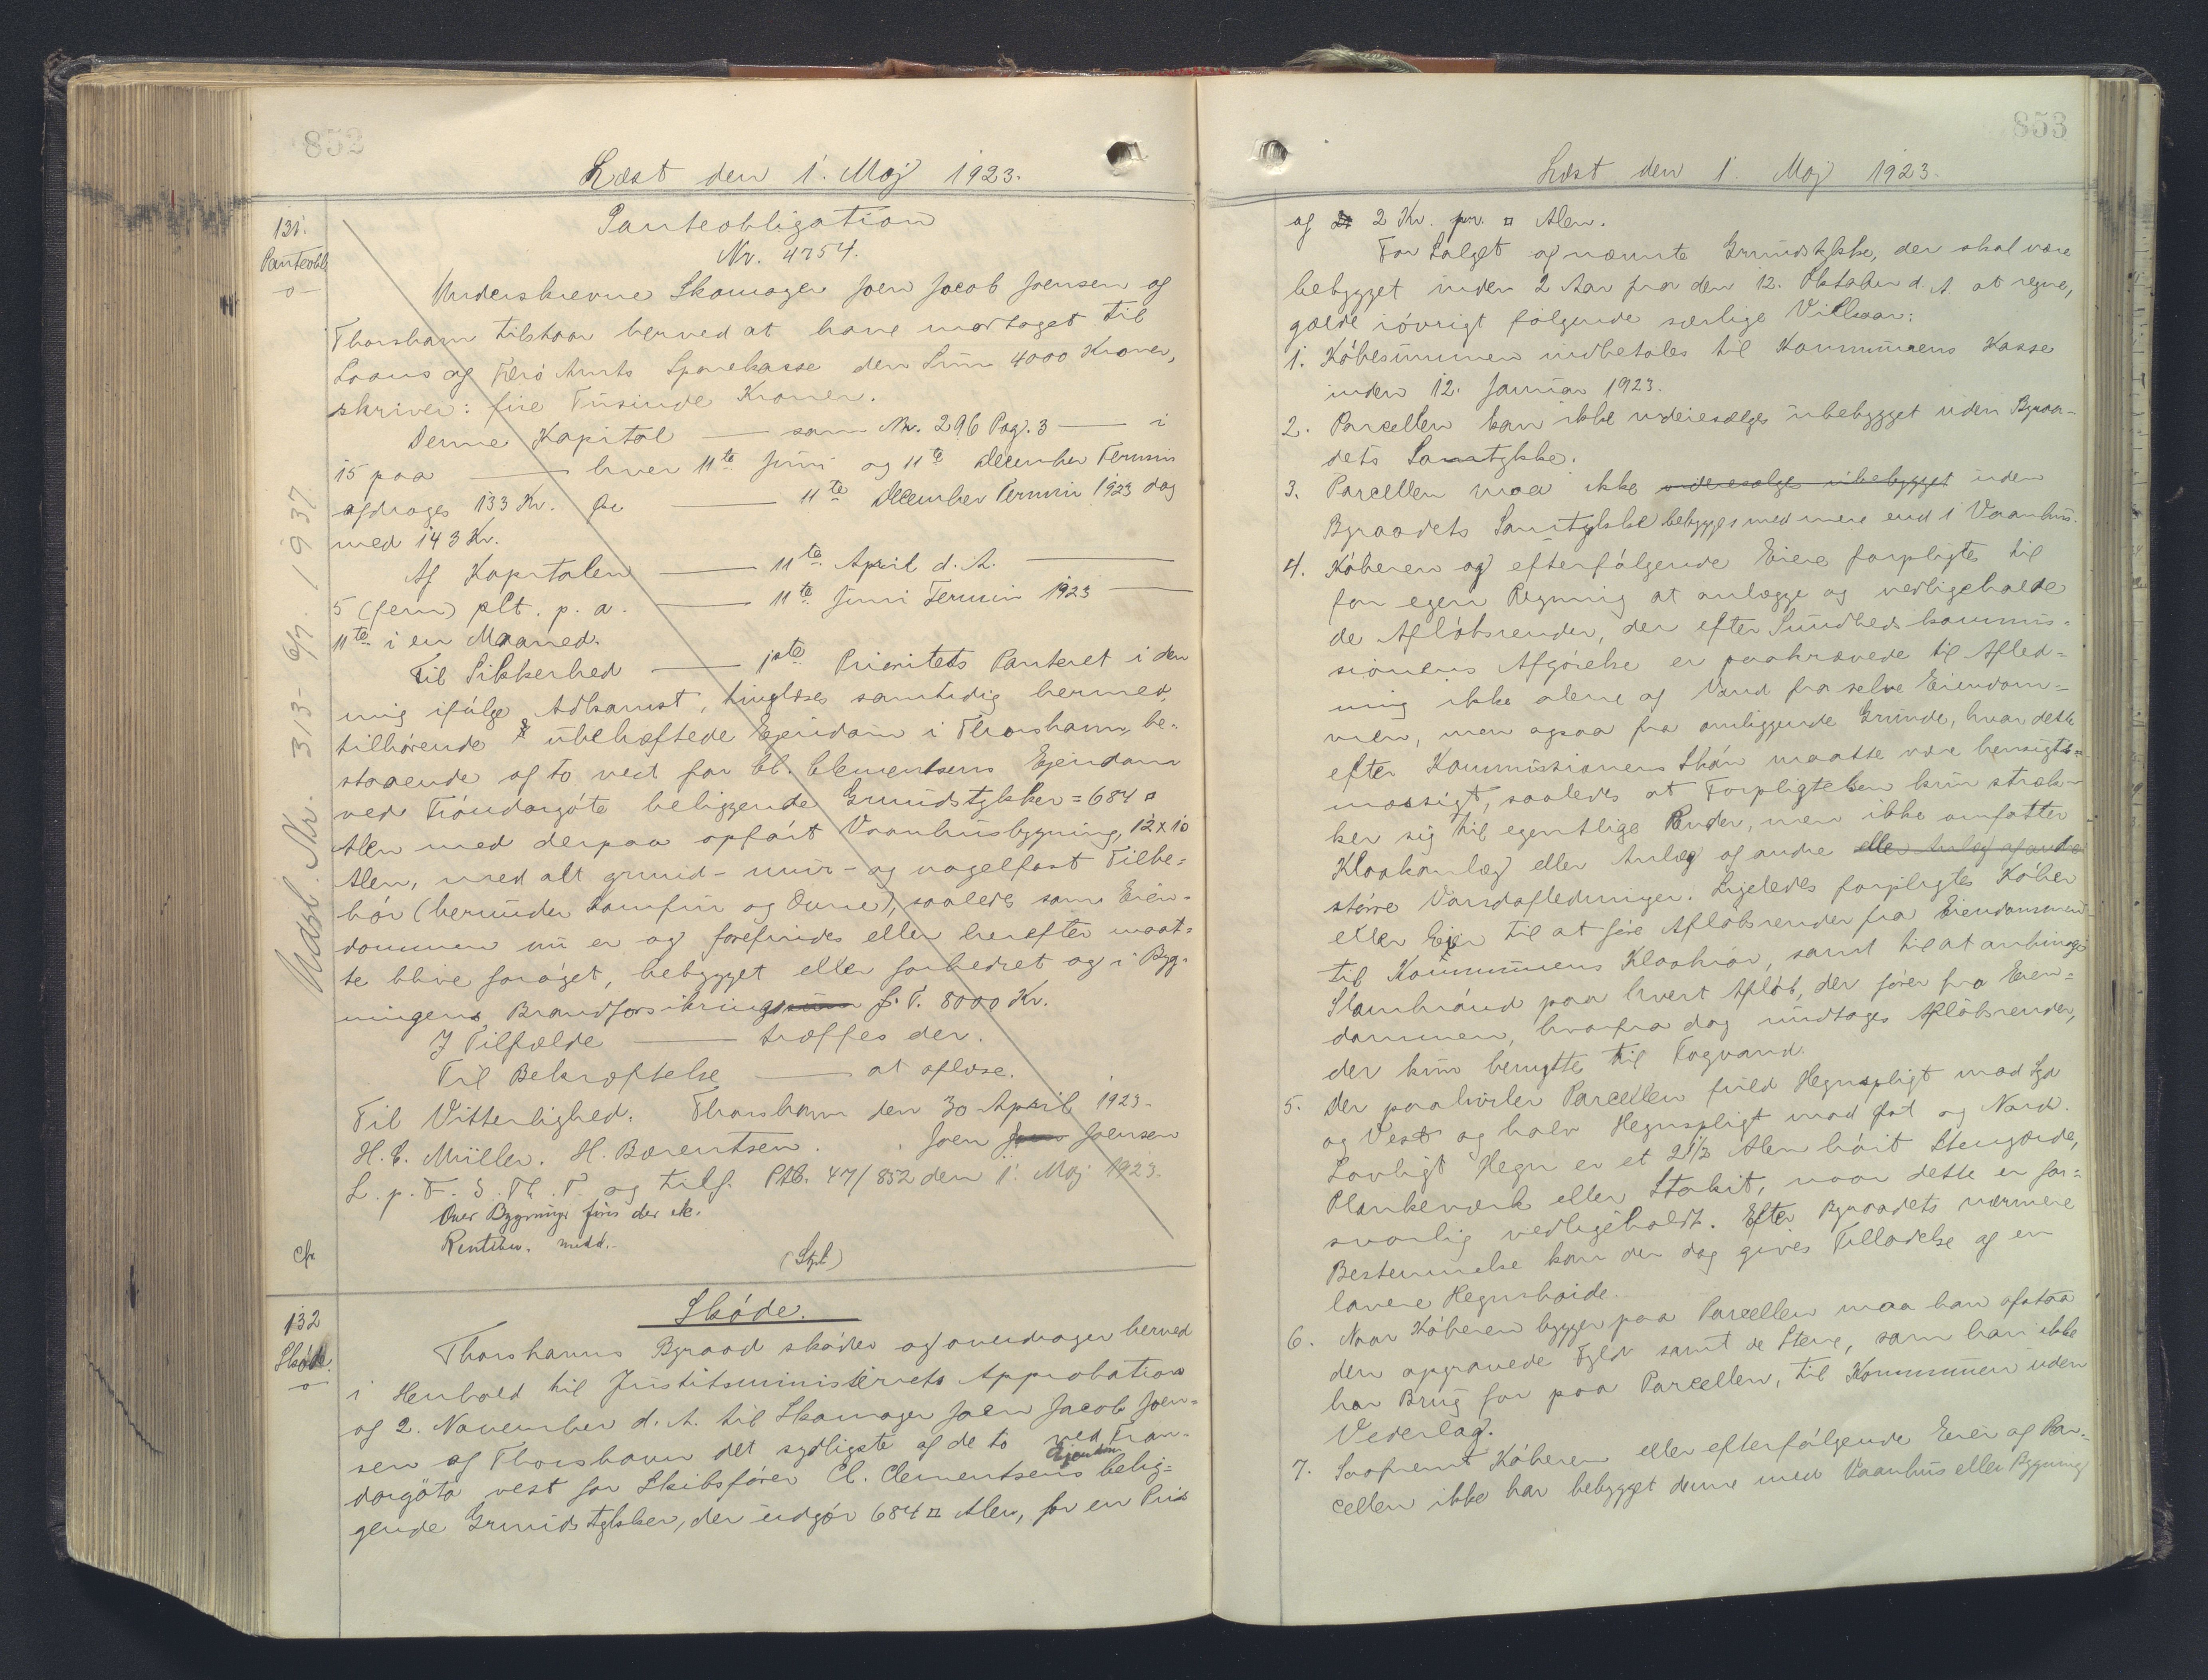 852
Læst den 1. Maj 1923.
131.
Panteobl.
Panteobligation
Nr. 4754.
Underskrevne Skomager Joen Jacob Joensen af
Thorshavn tilstaar herved at have modtaget til
Laans af Færö Amts Sparekasse den Sum 4000 Kroner,
skriver: fire Tusinde Kroner.
Denne Kapital — som Nr. 296 Pag. 3 — i
15 paa — hver 11te Juni og 11te December Termin
afdrages 133 Kr. — 11te December Termin 1923 dog
med 143 Kr.
Af Kapitalen — 11te April d. A. —
5 (fem) pCt. p. a. — 11te Juni Termin 1923 —
11te i en Maaned.
Til Sikkerhed — 1ste Prioritets Panteret i den
mig ifølge Adkomst, tinglæses samtidig hermed,
tilhörende ubehæftede Ejendom i Thorshavn, be-
staaende af to vest for Cl. Clementsens Ejendom
ved Tróndargöta beliggende Grundstykker = 684 □
Alen med derpaa opfört Vaanhusbygning, 12 x 10
Alen, med alt grund- mur- og nagelfast Tilbe-
hör (herunder Komfur og Ovne), saaledes som Eien-
dommen nu er og forefindes eller herefter maat-
te blive forøget, bebygget eller forbedret og i Byg-
ningens Brandforsikringssum f. T. 8000 Kr.
I Tilfælde — træffes der.
Til Bekræftelse — at aflæse.
Til Vitterlighed. Thorshavn den 30 April 1923.
H. C. Müller. H. Bærentsen. Joen Joensen
L. p. F. S. Th. T. og tilf. Ptb. 47/852 den 1. Maj 1923.
Over Bygninge fins der ek.
Rentebev. medd.
(Stpl)
Udsl. Skr. 313 - 6/7. 1937
132
Skóde.
Skóde.
Thorshavns Byraad skøder og overdrager herved
i Henhold til Justitsministeriets Approbation
af 2. November d. A. til Skomager Joen Jacob Joen-
sen af Thorshavn det sydligste af de to ved Tron-
dargöta vest for Skibsfører Cl. Clementsens Ejendom belig-
gende Grundstykker, der udgör 684 □ Alen, for en Pris
853
Læst den 1. Maj 1923.
af 2 Kr. pr. □ Alen.
For Salget af nævnte Grundstykke, der skal være
bebygget inden 2 Aar fra den 12. Oktober d. A. at regne,
gælde iøvrigt følgende særlige Vilkaar:
1. Købesummen indbetales til Kommunens Kasse
inden 12. Januar 1923.
2. Parcellen kan ikke videresælges ubebygget uden Byraa-
dets Samtykke.
3. Parcellen maa ikke videresælges ubebygget uden
Byraadets Samtykke bebygges med mere end 1 Vaanhus.
4. Køberen og efterfølgende Eiere forpligtes til
for egen Regning at anlægge og vedligeholde
de Afløbsrender, der efter Sundhedskommis-
sionens Afgørelse er paakrævede til Afled-
ning ikke alene af Vand fra selve Eiendom-
men, men ogsaa fra omliggende Grunde, hvor dette
efter Kommissionens Skøn maatte være hensigts-
mæssigt, saaledes at Forpligtelsen kun stræk-
ker sig til egentlige Render, men ikke omfatter
Kloakanlæg eller Anlæg af andre eller Anlæg af andre
større Vandafledninger. Ligeledes forpligtes Køber
eller Ejer til at føre Afløbsrender fra Eiendommen
til Kommunens Kloakrør, samt til at anbringe
Slambrønd paa hvert Afløb, der fører fra Eien-
dommen, hvorfra dog undtages Afløbsrender,
der kun benyttes til Tagvand.
5. Der paahviler Parcellen fuld Hegnspligt mod Syd
og Vest og halv Hegnspligt mod Øst og Nord.
Lovligt Hegn er et 2 1/2 Alen højt Stengærde,
Plankeværk eller Stakit, naar dette er for-
svarlig vedligeholdt. Efter Byraadets nærmere
Bestemmelse kan der dog gives Tilladelse af en
lavere Hegnshøide.
6. Naar Køberen bygger paa Parcellen maa han afstaa
den opgravede Fyld samt de Stene, som han ikke
har Brug for paa Parcellen, til Kommunen uden
Vederlag.
7. Saafremt Køberen eller efterfølgende Eier af Par-
cellen ikke har bebygget denne med Vaanhus eller Bygning